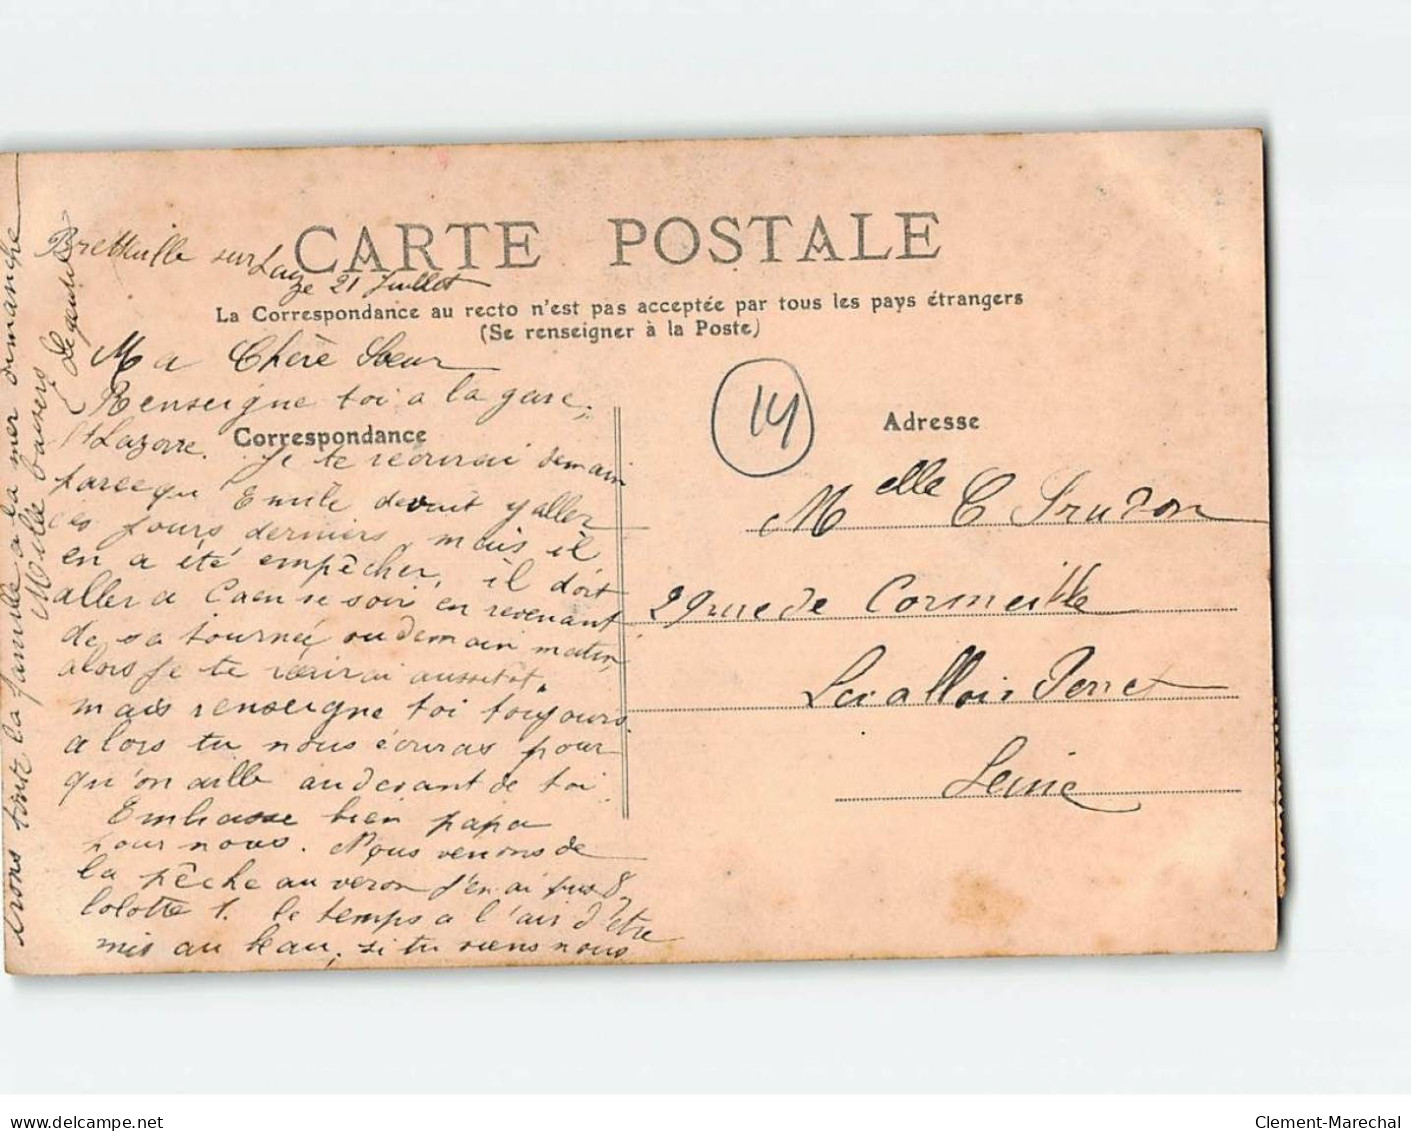 CARTE POSTALE
Bretteville sur Laize 21 Juillet
La Correspondance au recto n'est pas acceptée par tous les pays étrangers
(Se renseigner à la Poste)
Ma Chère Soeur
Renseigne toi a la gare,
St Lazarre. Je te recrirai demain
Correspondance
parcequ Emile devait y aller
ces jours derniers, mais il
en a été empêcher, il doit
aller a Caen ce soir en revenant
de sa tournée ou demain matin,
alors je te recrirai aussitôt.
mais renseigne toi toujours
alors tu nous écriras pour
qu'on aille au devant de toi
Embrasse bien papa
pour nous. Nous venons de
la pêche au veron j'en ai pris 8,
lolotte 1. le temps a l'air d'être
mis au beau, si tu viens nous
irons toute la famille a la mer dimanche
Mille baisers
14
Adresse
Melle C Srudon
29 rue de Cormeille
Levallois Perret
Seine
delcampe.net
Clement-Marechal